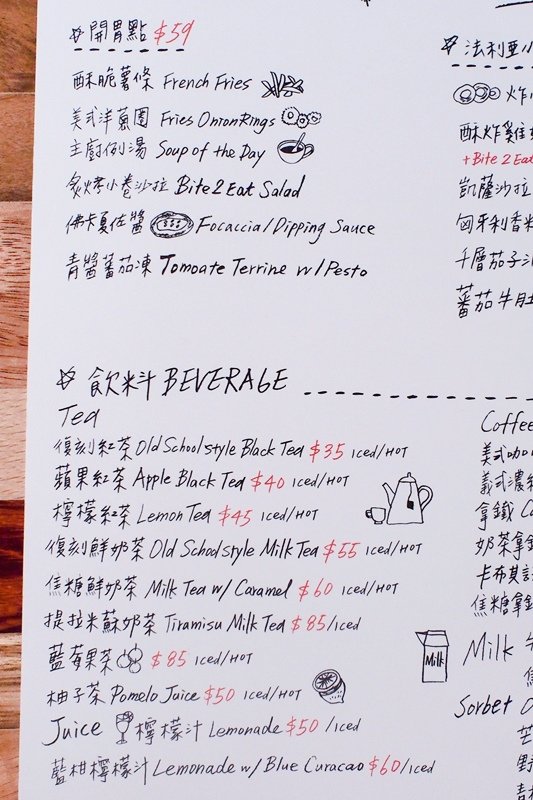 開胃點 $59
酥脆薯條 French Fries
美式洋蔥圈 Fries Onion Rings
主廚例湯 Soup of the Day
炙烤小卷沙拉 Bite 2 Eat Salad
佛卡夏佐醬 Focaccia/Dipping Sauce
青醬蕃茄凍 Tomoate Terrine w/Pesto
法利亞小
炸
酥炸雞
+Bite 2 Eat
凱薩沙拉
匈牙利香料
千層茄子
蕃茄牛肚
飲料 BEVERAGE
Tea
復刻紅茶 Old School style Black Tea $35 Iced/HOT
蘋果紅茶 Apple Black Tea $40 Iced/HOT
檸檬紅茶 Lemon Tea $45 Iced/HOT
復刻鮮奶茶 Old School style Milk Tea $55 Iced/HOT
焦糖鮮奶茶 Milk Tea w/ Caramel $60 Iced/HOT
提拉米蘇奶茶 Tiramisu Milk Tea $85/Iced
藍莓果茶 $85 Iced/HOT
柚子茶 Pomelo Juice $50 Iced/HOT
Juice 檸檬汁 Lemonade $50 /Iced
藍柑檸檬汁 Lemonade w/ Blue Curacao $60/Iced
Coffee
美式咖
義式濃
拿鐵 Ca
奶茶拿
卡布其
焦糖拿
Milk
Milk 牛
焦
Sorbet
芒
野
青